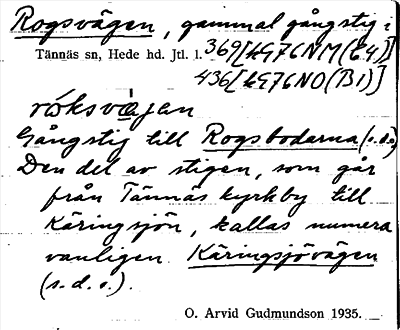 Rogsvägen, gammal gångstig i
Tännäs sn, Hede hd. Jtl. l. 369[HG76NM(E4)]
436[HG76NO(B1)]
Gångstig till Rogsbodarna (s.d.)
Den del av stigen, som går
från Tännäs kyrkby till
Käringsjön, kallas numera
vanligen Käringsjövägen
(s.d.o.).
O. Arvid Gudmundson 1935.